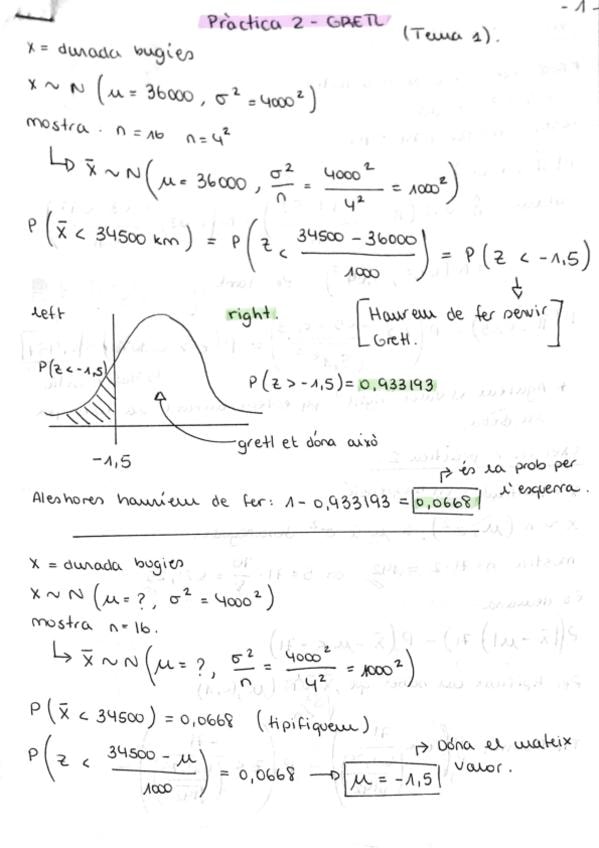 - 1 -
Pràctica 2 - GRETL (Tema 1).
x = durada bugies
x ~ N (μ = 36000, σ² = 4000²)
mostra. n = 16 n = 4²
↳ x̄ ~ N (μ = 36000, σ²/n = 4000²/4² = 1000²)
P (x̄ < 34500 km) = P (z < (34500 - 36000)/1000) = P (z < -1,5)
left right. [Haurem de fer servir
Gretl.]
P(z < -1,5) P (z > -1,5) = 0,933193
gretl et dóna això
-1,5
→ és la prob per
l'esquerra.
Aleshores hauríem de fer: 1 - 0,933193 = 0,0668
x = durada bugies
x ~ N (μ = ?, σ² = 4000²)
mostra n = 16.
↳ x̄ ~ N (μ = ?, σ²/n = 4000²/4² = 1000²)
P (x̄ < 34500) = 0,0668 (tipifiquem)
P (z < (34500 - μ)/1000) = 0,0668 → μ = -1,5 → Dóna el mateix
valor.